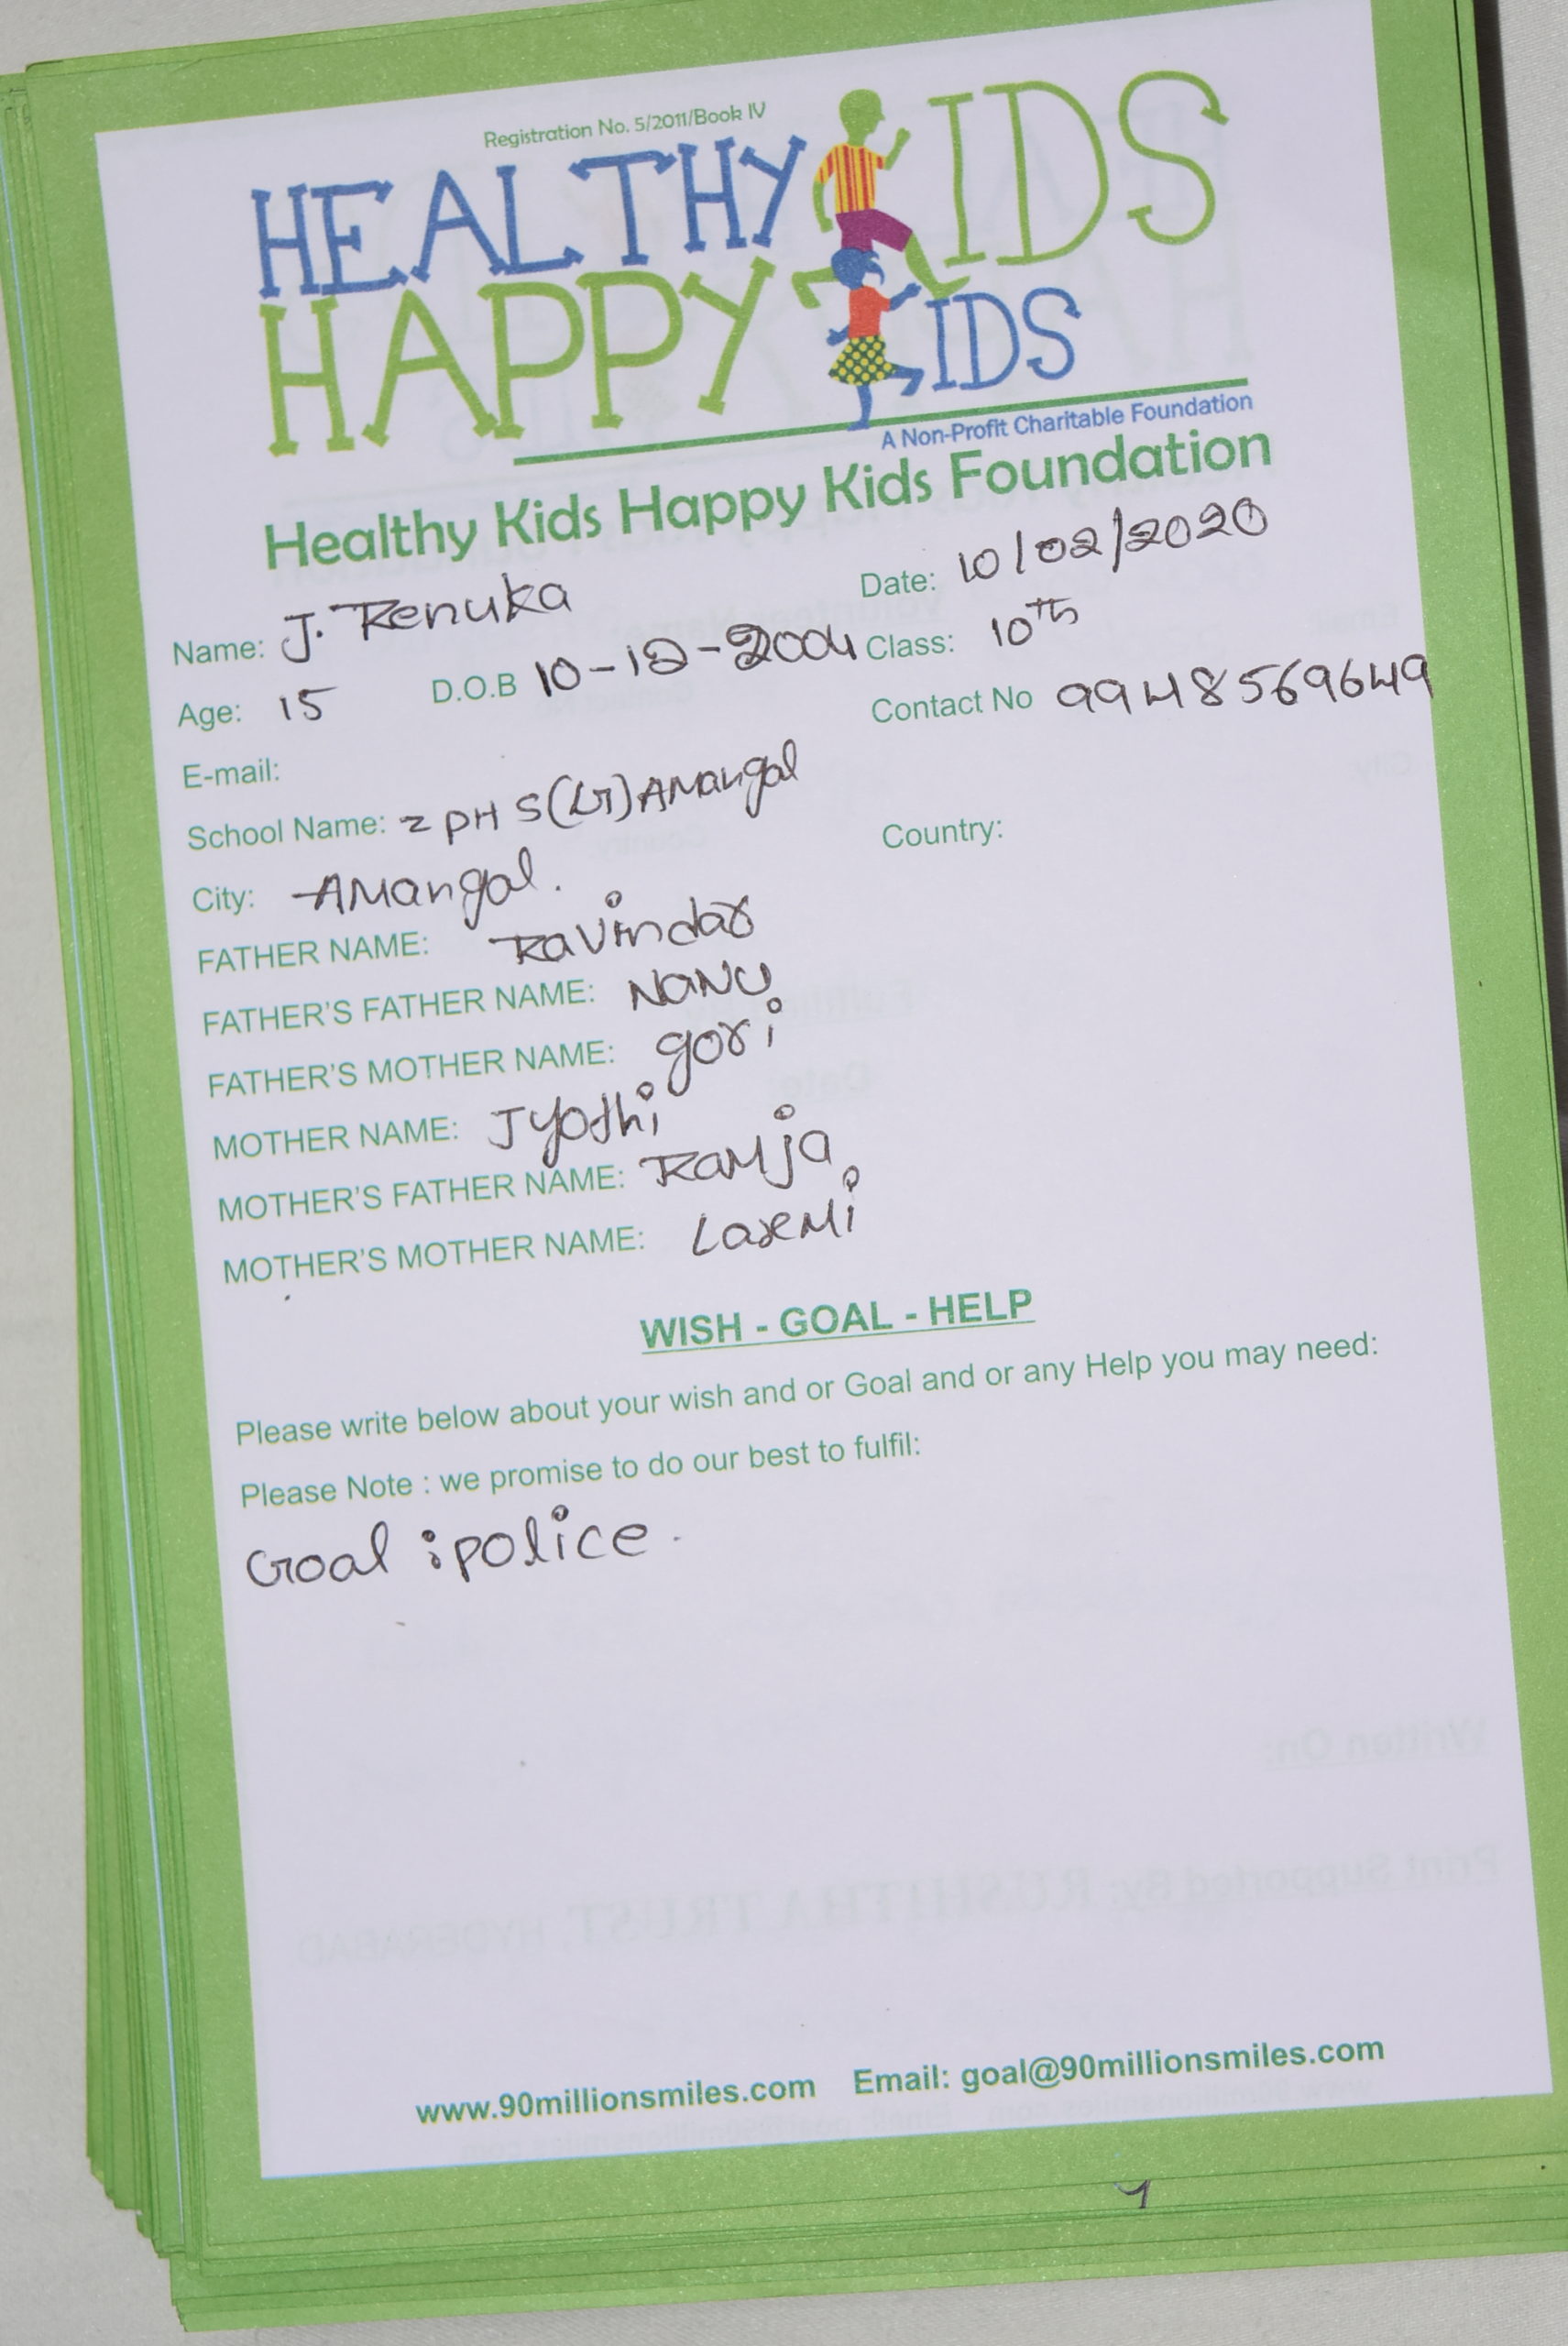 Registration No. 5/2011/Book IV
HEALTHY KIDS
HAPPY KIDS
A Non-Profit Charitable Foundation
Healthy Kids Happy Kids Foundation
Name: J. Renuka Date: 10/02/2020
Age: 15 D.O.B 10-12-2004 Class: 10th
E-mail: Contact No 9948569649
School Name: ZPHS(G) Amangal
City: Amangal. Country:
FATHER NAME: Ravindar
FATHER'S FATHER NAME: NaNU
FATHER'S MOTHER NAME: gori
MOTHER NAME: Jyothi
MOTHER'S FATHER NAME: Ramja
MOTHER'S MOTHER NAME: Laxmi
WISH - GOAL - HELP
Please write below about your wish and or Goal and or any Help you may need:
Please Note : we promise to do our best to fulfil:
Goal : police.
www.90millionsmiles.com Email: goal@90millionsmiles.com